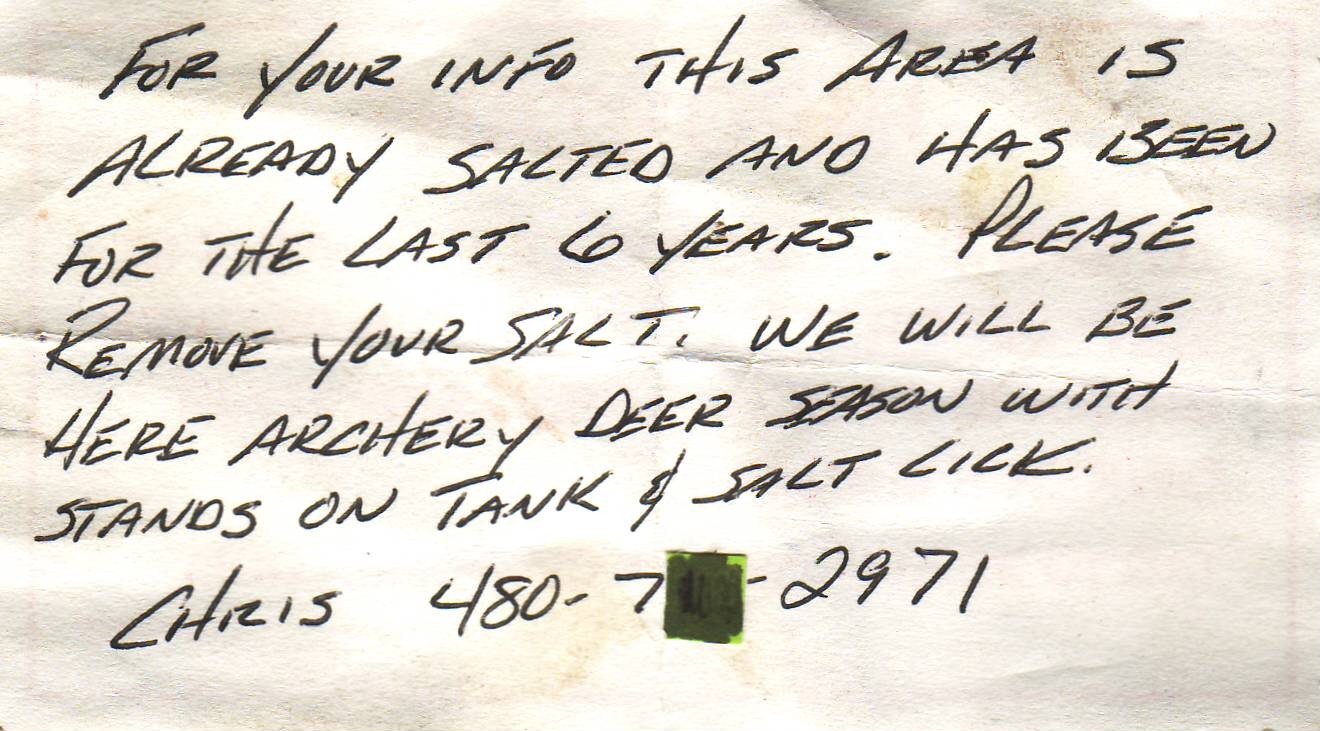 FOR YOUR INFO THIS AREA IS
ALREADY SALTED AND HAS BEEN
FOR THE LAST 6 YEARS. PLEASE
REMOVE YOUR SALT. WE WILL BE
HERE ARCHERY DEER SEASON WITH
STANDS ON TANK & SALT LICK.
CHRIS 480-7 -2971